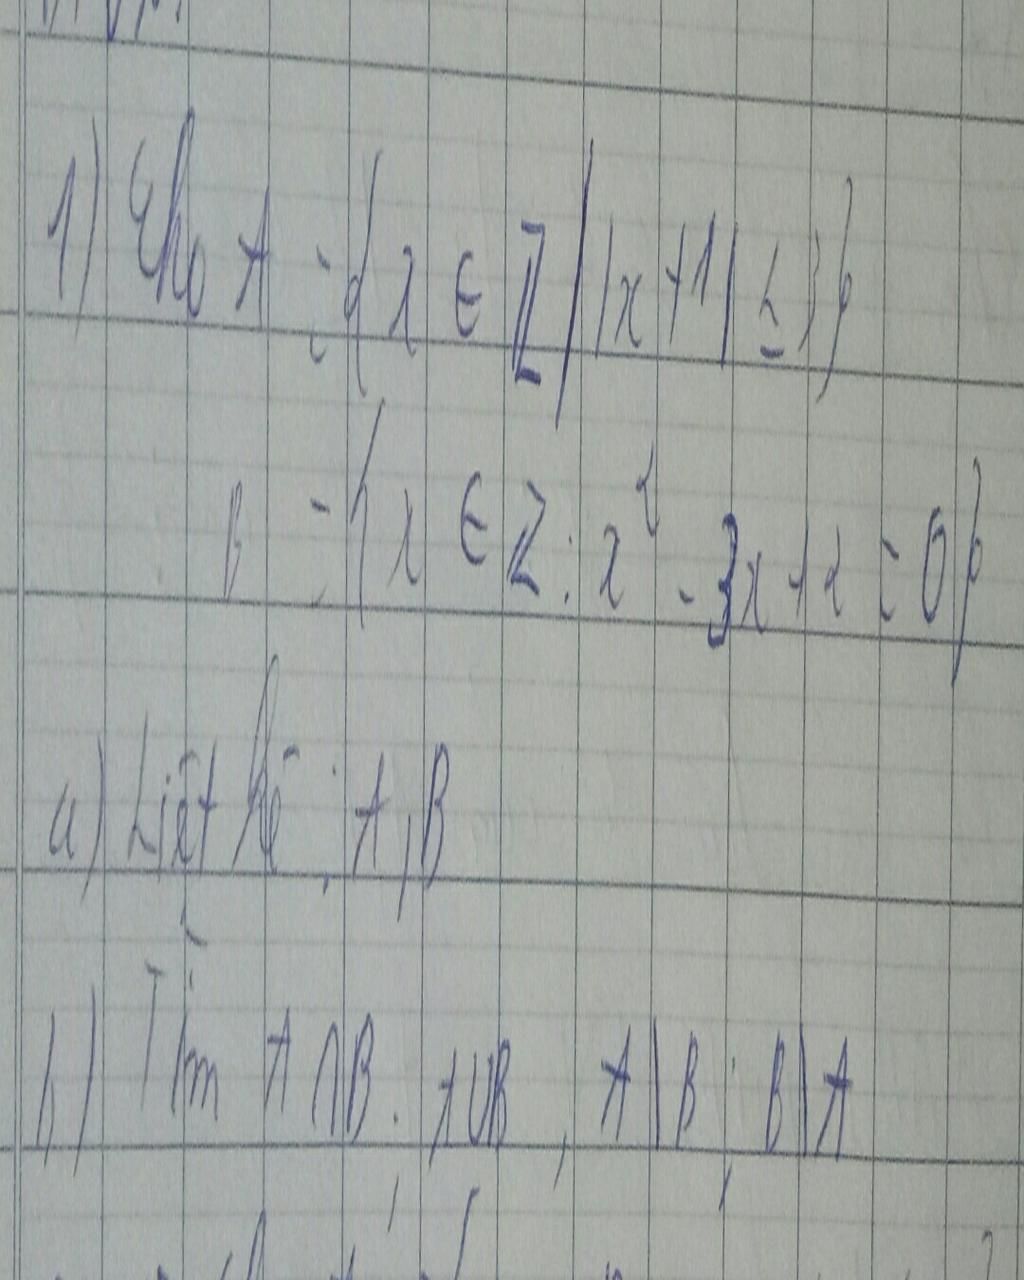 1) Cho A = {x ∈ Z | |x+1| ≤ 3}
B = {x ∈ Z : x² - 3x + 2 = 0}
a) Liệt kê : A, B
b) Tìm A∩B, A∪B, A\B, B\A